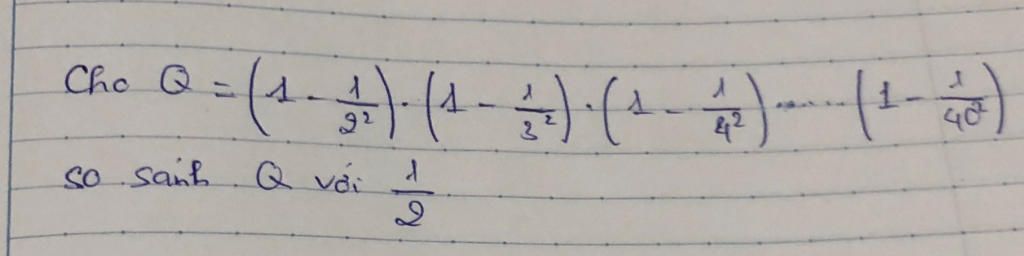 Cho Q = (1 - 1/2²) . (1 - 1/3²) . (1 - 1/4²) ...... (1 - 1/40²)
so sánh Q với 1/2